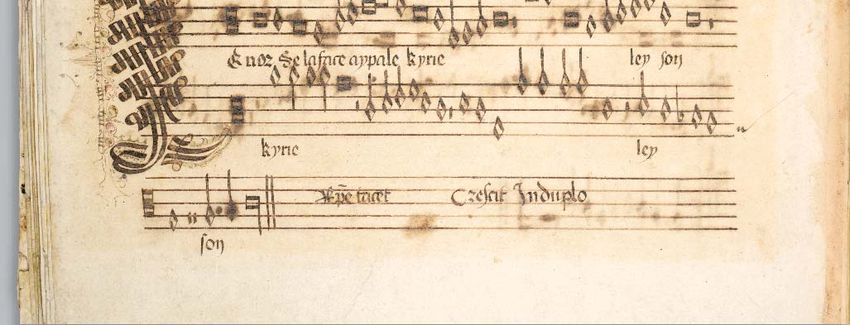 Tenor Se la face ay pale kyrie ley son
kyrie ley
son
Xp̄e tacet Crescit Induplo